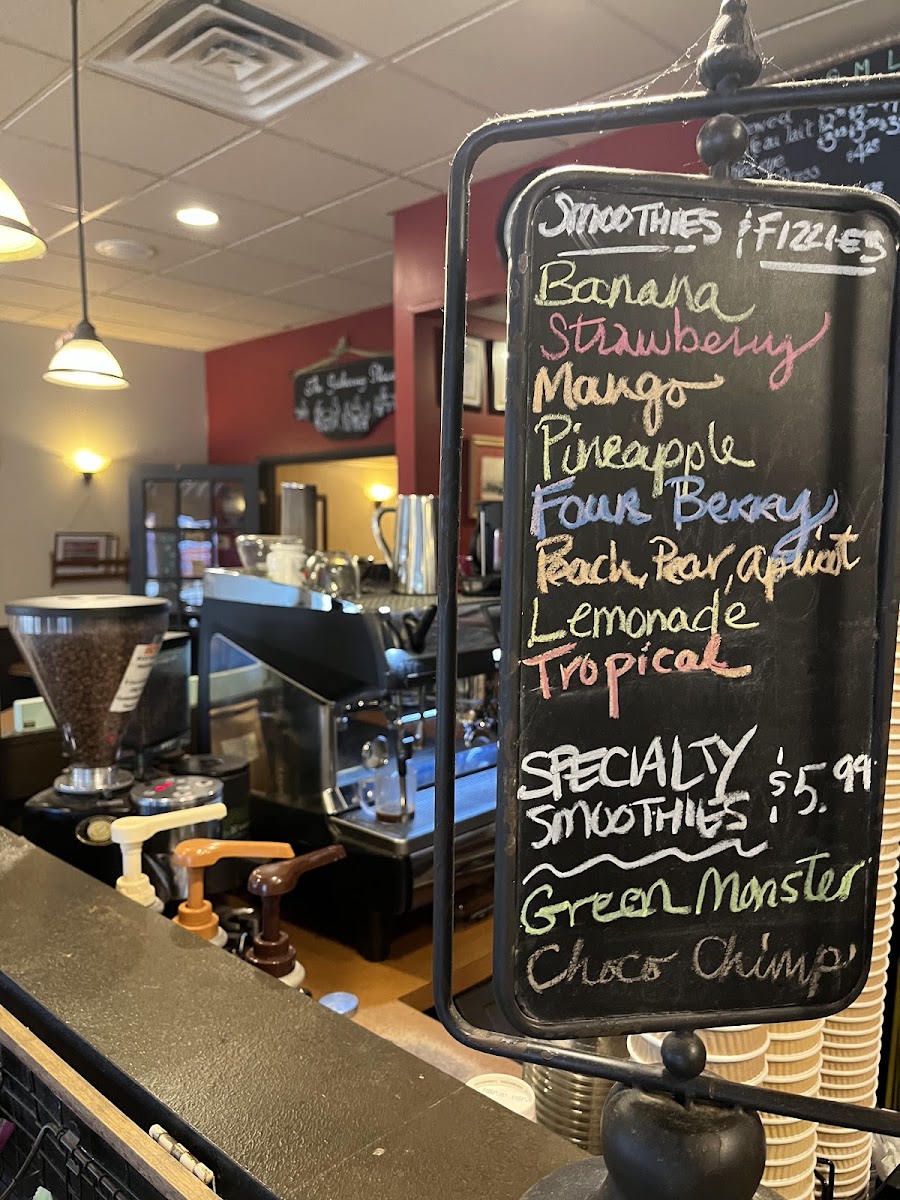 SMOOTHIES & FIZZIES
Banana
Strawberry
Mango
Pineapple
Four Berry
Peach, Pear, apricot
Lemonade
Tropical
SPECIALTY
SMOOTHIES $5.99
Green Monster
Choco Chimp
The Gathering Place
M L